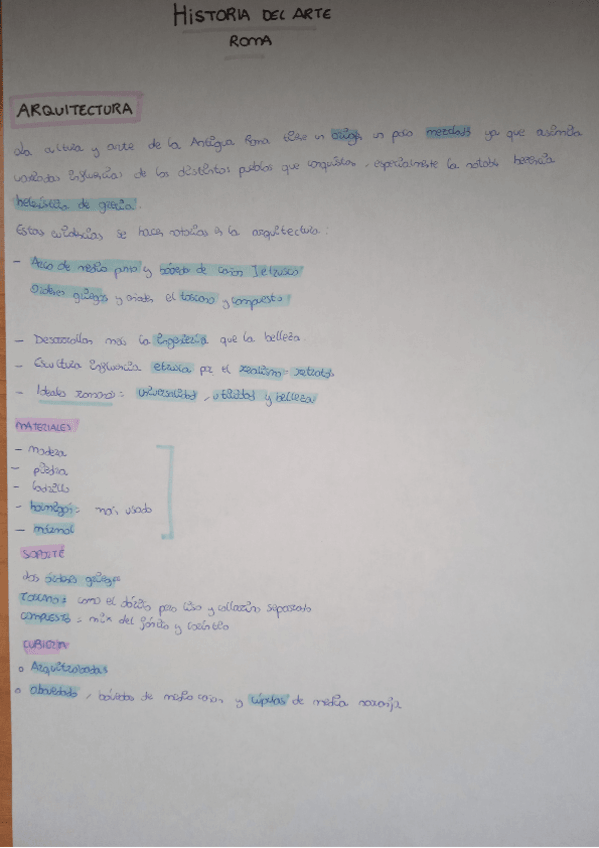 HISTORIA DEL ARTE
ROMA
ARQUITECTURA
La cultura y arte de la Antigua Roma tiene un origen un poco mezclado ya que asimila
variadas influencias de los distintos pueblos que conquistan, especialmente la notable herencia
helenística de grecia.
Estas evidencias se hacen notorias en la arquitectura:
- Arco de medio punto y bóveda de cañón] etrusco
Órdenes griegos y crean el toscano y compuesto
- Desarrollan más la ingeniería que la belleza.
- Escultura influencia etrusca por el realismo retratos
- Ideales romanos: universalidad, utilidad y belleza
MATERIALES
- madera
- piedra
- ladrillo
- hormigón: más usado
- mármol
SOPORTE
Los órdenes griegos
TOSCANO: como el dórico pero liso y collarino separado
COMPUESTO: mix del jónico y corintio
CUBIERTA
o Arquitrabadas
o abovedado, bóvedas de medio cañon y cúpulas de media naranja